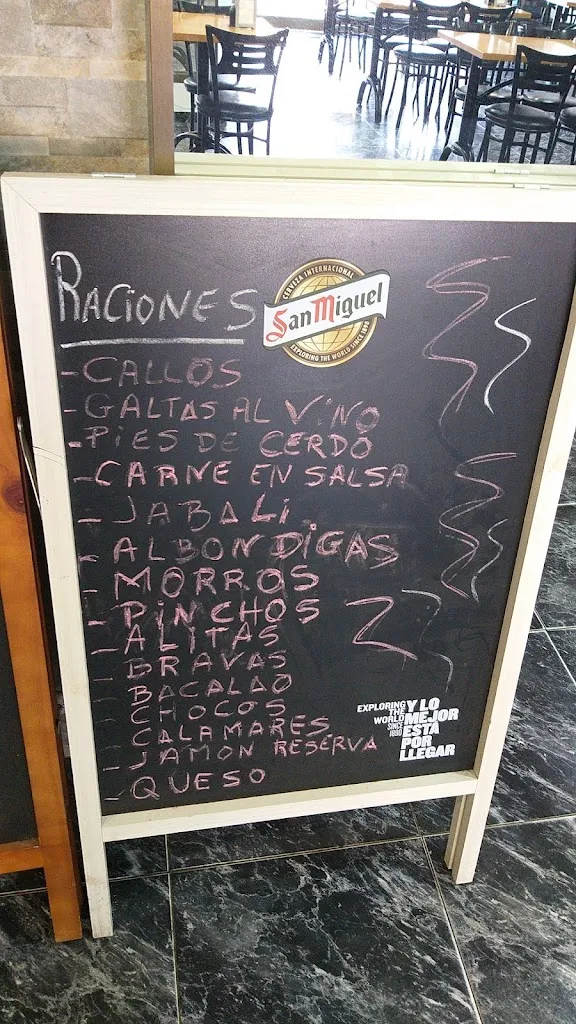 RACIONES
CERVEZA INTERNACIONAL
San Miguel
EXPLORING THE WORLD SINCE 1890
-CALLOS
-GALTAS AL VINO
-PIES DE CERDO
-CARNE EN SALSA
-JABALI
-ALBONDIGAS
-MORROS
-PINCHOS
-ALITAS
-BRAVAS
-BACALAO
-CHOCOS
-CALAMARES
-JAMON RESERVA
-QUESO
EXPLORING
THE
WORLD
SINCE
1890
Y LO
MEJOR
ESTÁ
POR
LLEGAR